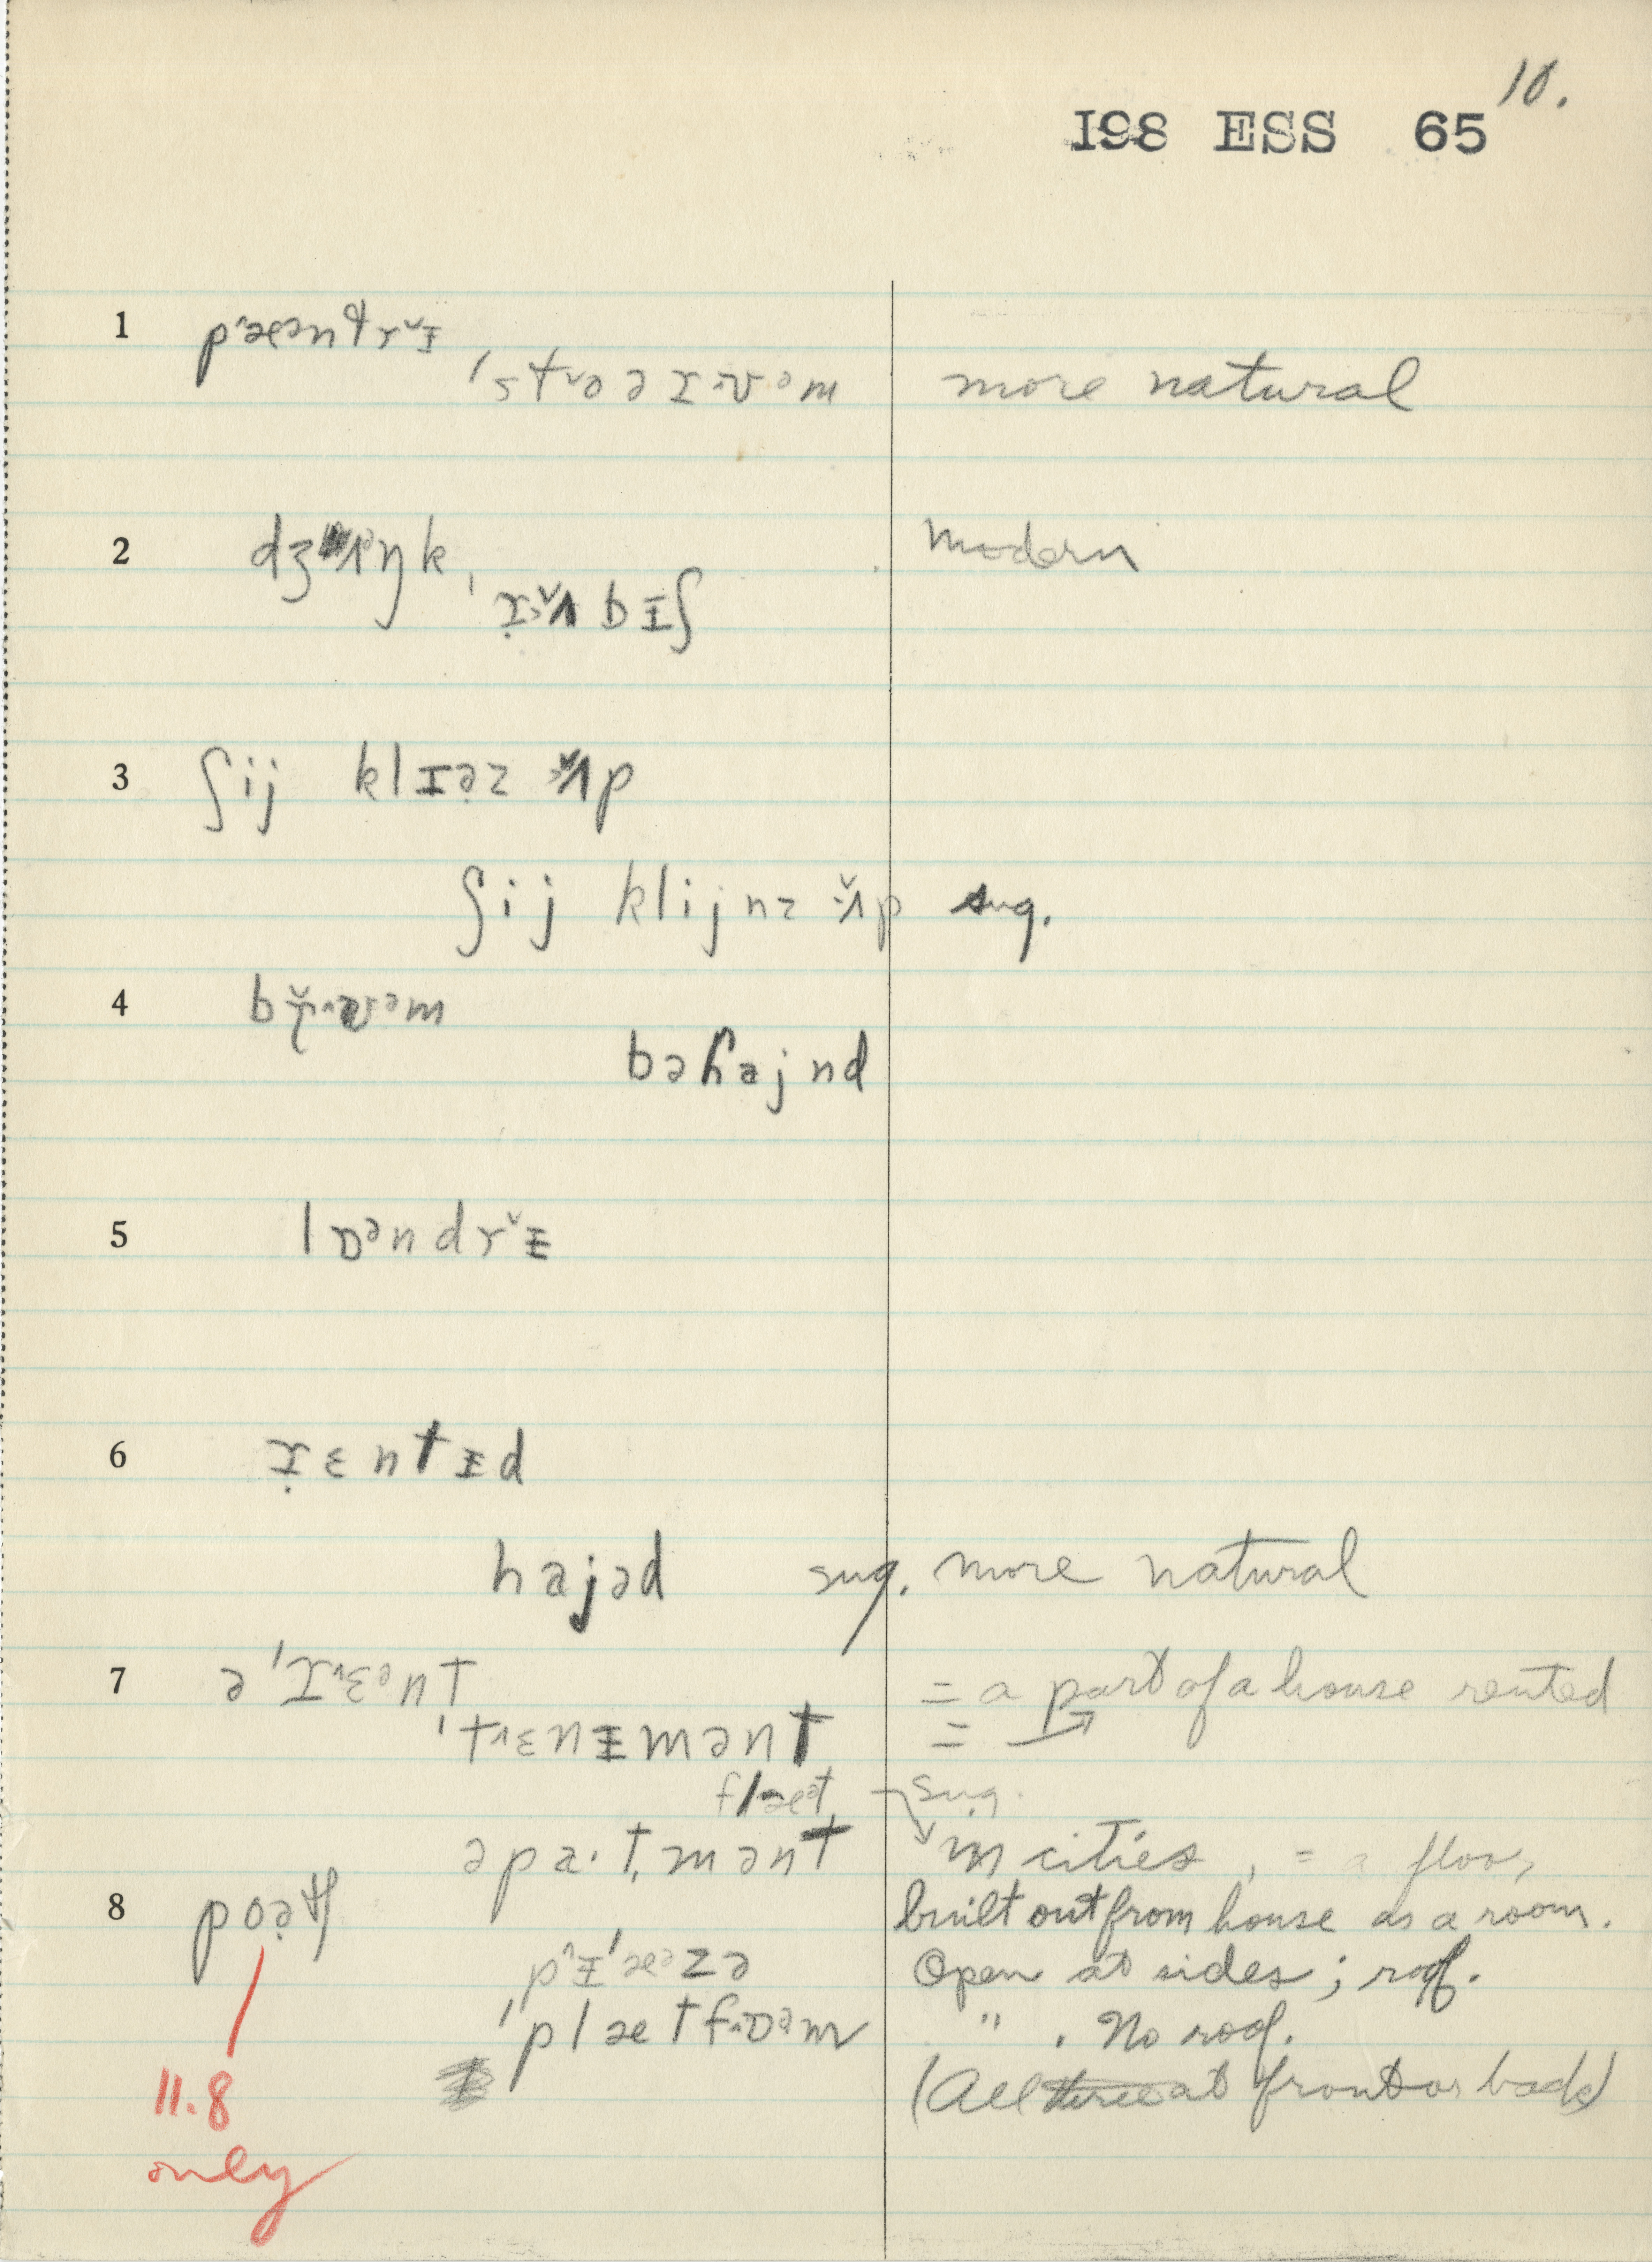 10.
I98 ESS 65
1 pæəntrɪ
ˈstoəɹʊəm more natural
2 dʒʌŋk, modern
ɹʌbɪʃ
3 ʃij klɪəz ʌp
ʃij klijnz ʌp sug.
4 bɹʊəm
bəhajnd
5 lɒəndrɪ
6 ɹɛntɪd
hajəd sug. more natural
7 ə ˈɹɛənt = a part of a house rented
ˈtɛnɪmənt =
flæət sug.
əpa·tmənt in cities, = a floor,
8 poətʃ built out from house as a room.
pɪˈæəzə Open at sides; roof.
ˈplætfɒəm " . No roof.
(All three at front or back)
11.8
only